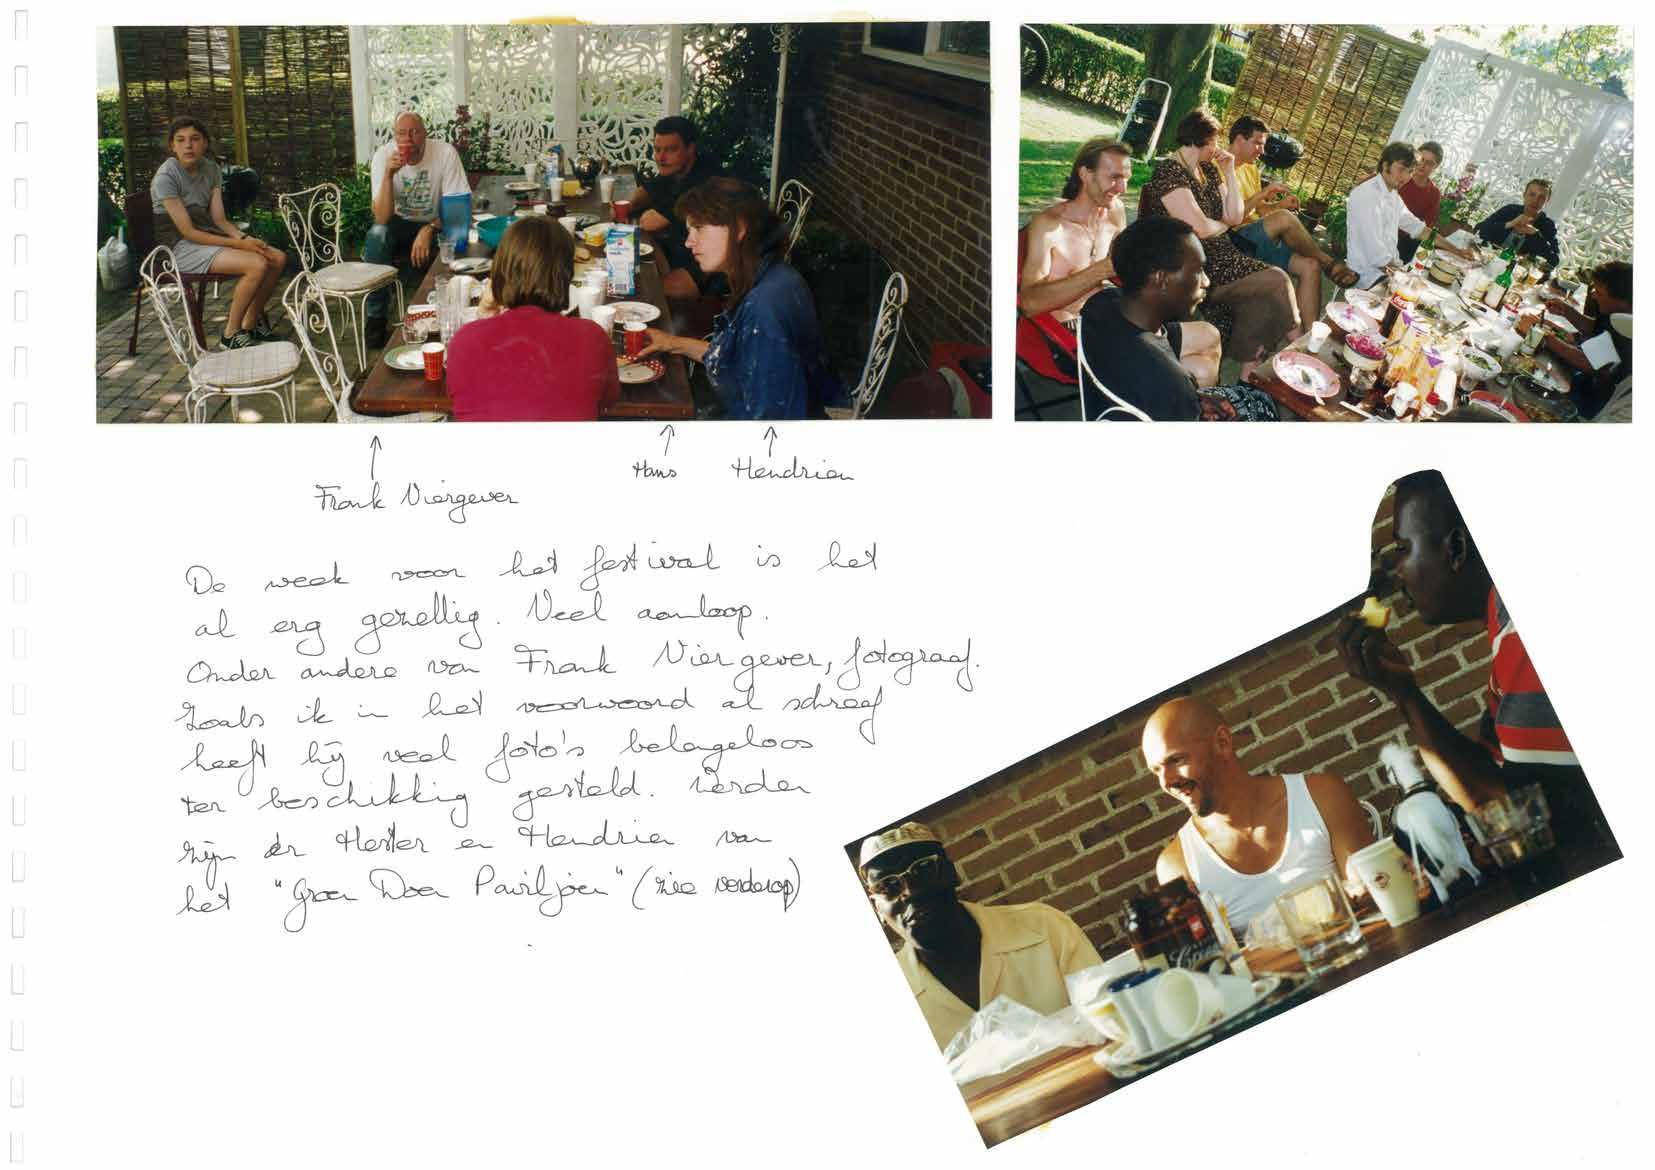 Frank Viergever
Hans
Hendrien
De week voor het festival is het
al erg gezellig. Veel aanloop.
Onder andere van Frank Viergever, fotograaf.
Zoals ik in het voorwoord al schreef
heeft hij veel foto's belangeloos
ter beschikkig gesteld. Verder
zijn er Hester en Hendrien van
het "Groen Doen Paviljoen" (zie verderop)